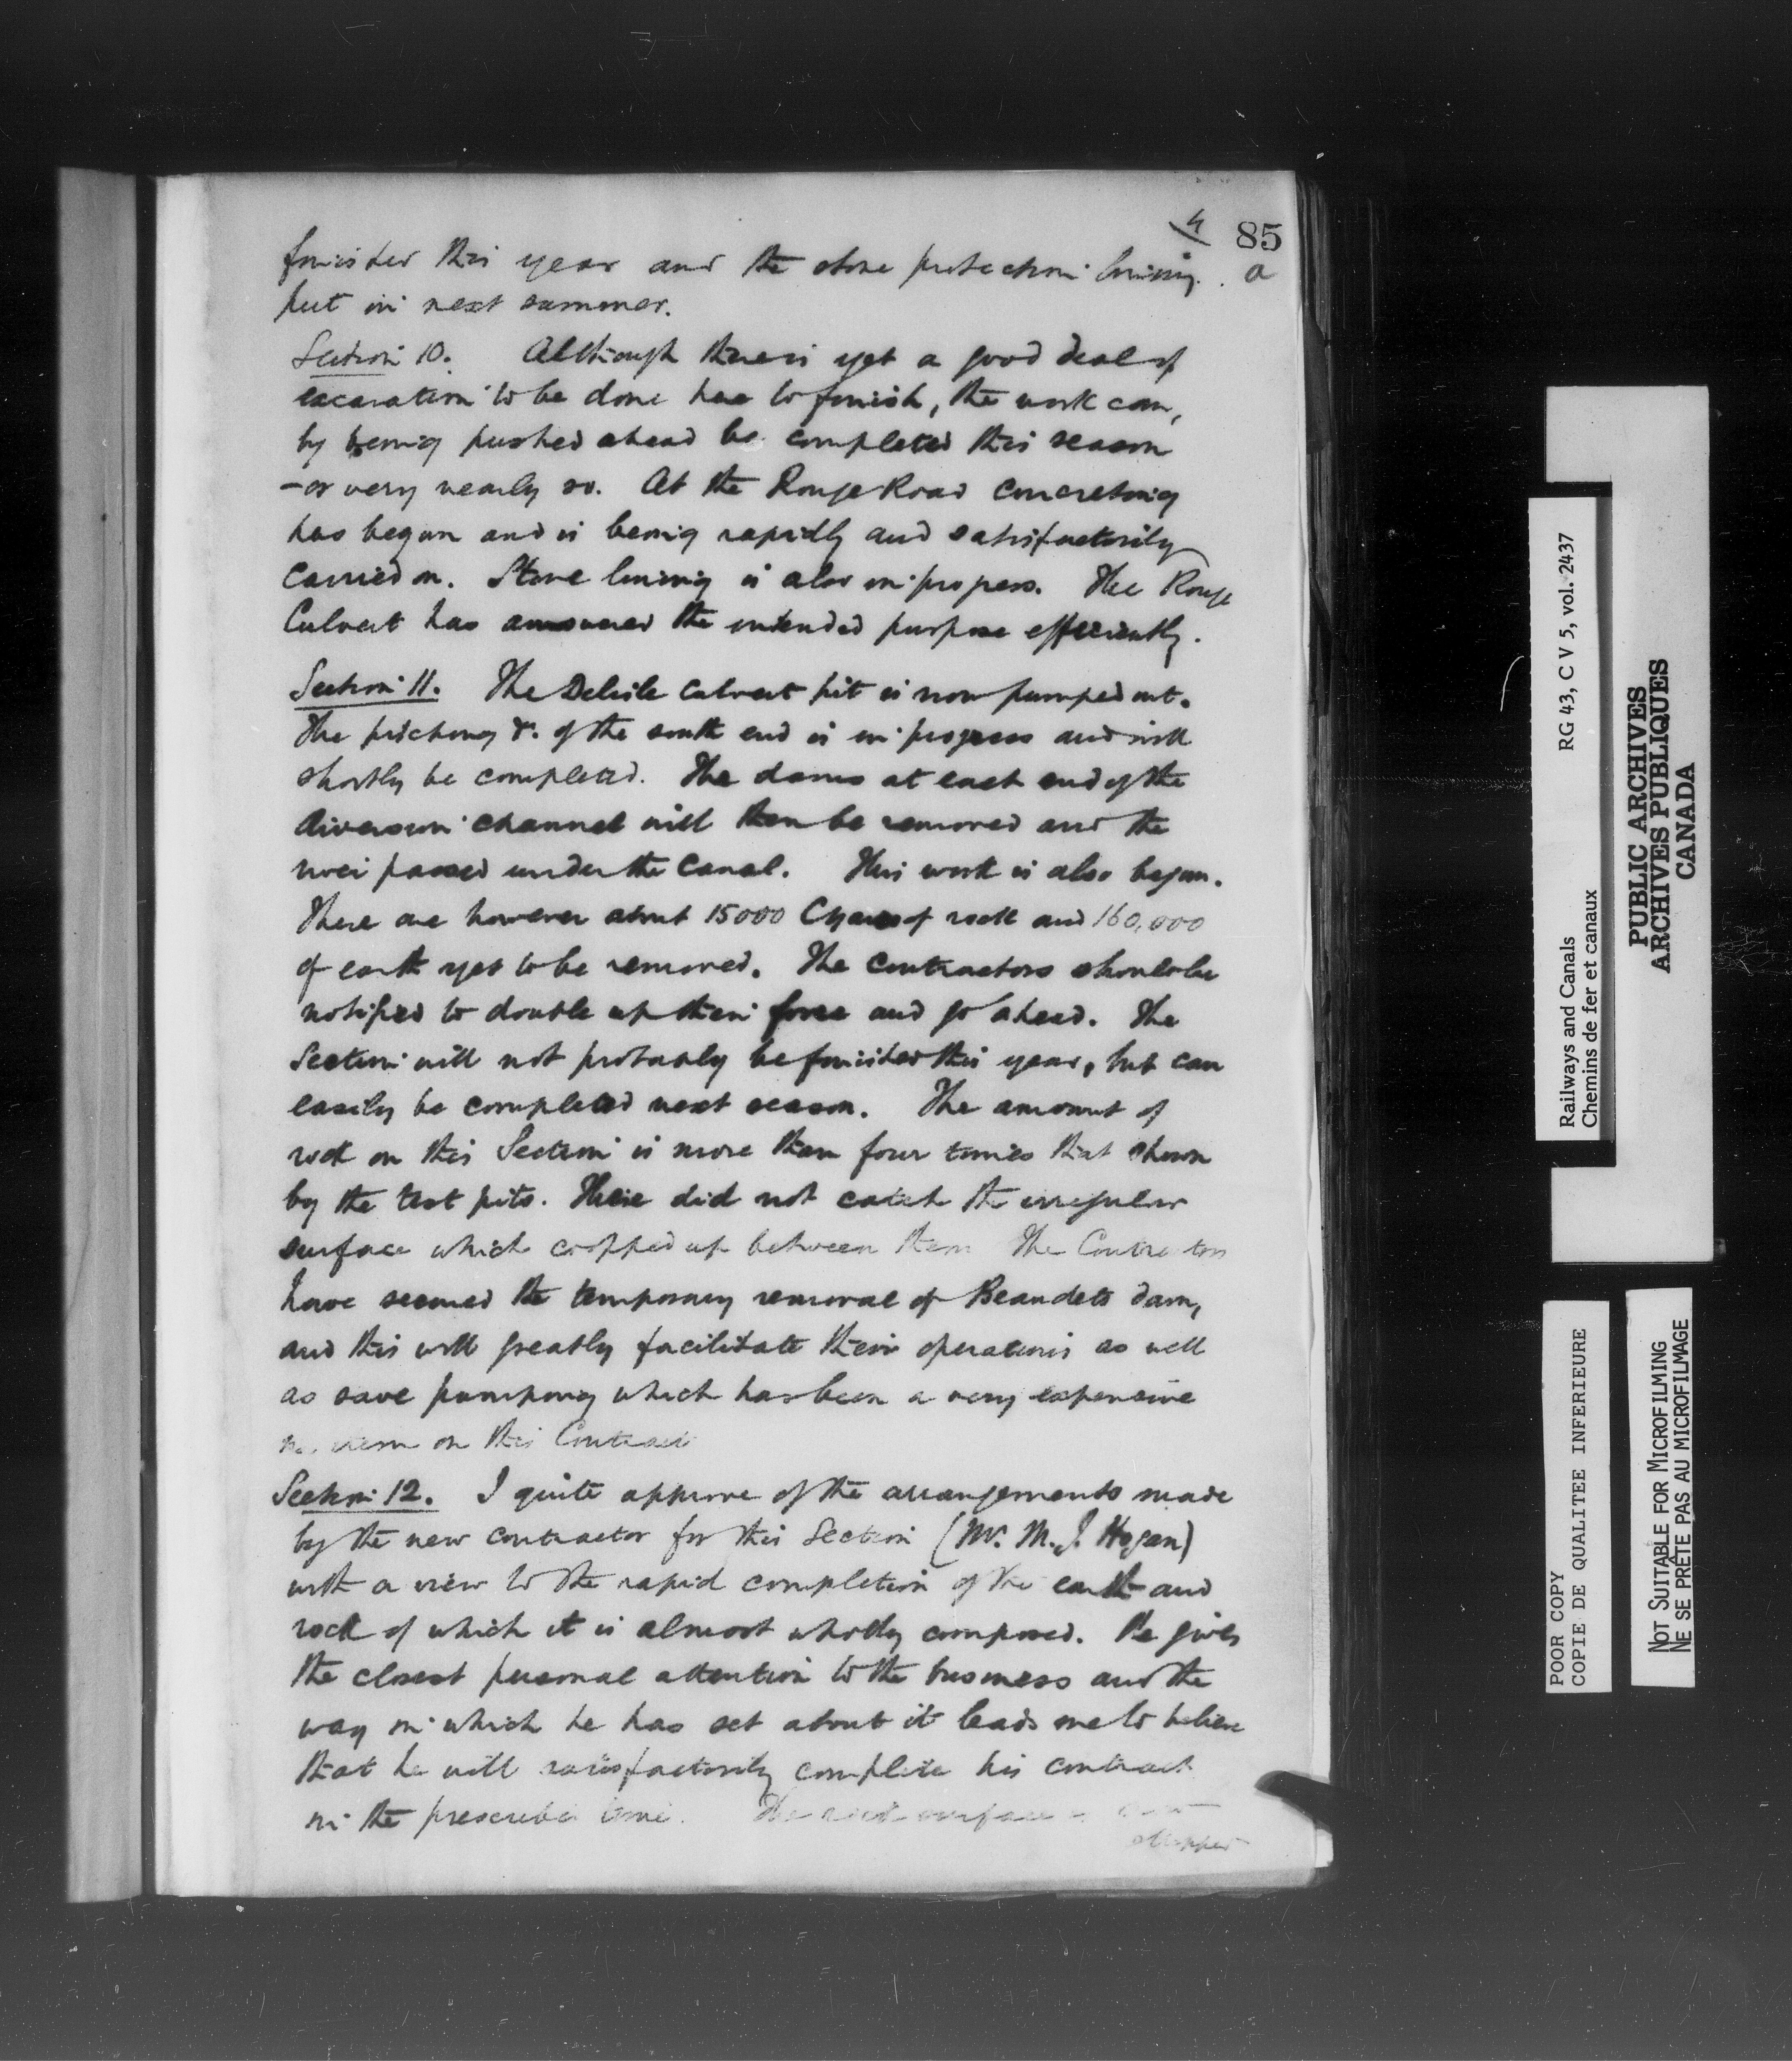 4
85
a
finished this year and the stone protection lining
put in next summer.
Section 10. Although there is yet a good deal of
excavation to be done here to finish, the work can,
by being pushed ahead be completed this season
- or very nearly so. At the Rouge Road concreting
has begun and is being rapidly and satisfactorily
carried on. Stone lining is also in progress. The Rouge
Culvert has answered the intended purpose efficiently.
Section 11. The Delisle culvert pit is now pumped out.
The pitching &c. of the south end is in progress and will
shortly be completed. The dams at each end of the
diversion channel will then be removed and the
river passed under the Canal. This work is also begun.
There are however about 15000 C yards of rock and 160,000
of earth yet to be removed. The contractors should be
notified to double up their force and go ahead. The
Section will not probably be finished this year, but can
easily be completed next season. The amount of
rock on this Section is more than four times that shown
by the test pits. These did not catch the irregular
surface which cropped up between them The Contractors
have secured the temporary removal of Beaudets dam,
and this will greatly facilitate their operations as well
as save pumping which has been a very expensive
item on this Contract
Section 12. I quite approve of the arrangements made
by the new contractor for this Section (Mr. M. J. Hogan)
with a view to the rapid completion of the earth and
rock of which it is almost wholly composed. He gives
the closest personal attention to the business and the
way in which he has set about it leads me to believe
that he will satisfactorily complete his contract
in the prescribed time. The rock surface
stripped
Railways and Canals RG 43, C V 5, vol. 2437
Chemins de fer et canaux
PUBLIC ARCHIVES
ARCHIVES PUBLIQUES
CANADA
POOR COPY
COPIE DE QUALITEE INFERIEURE
NOT SUITABLE FOR MICROFILMING
NE SE PRÊTE PAS AU MICROFILMAGE